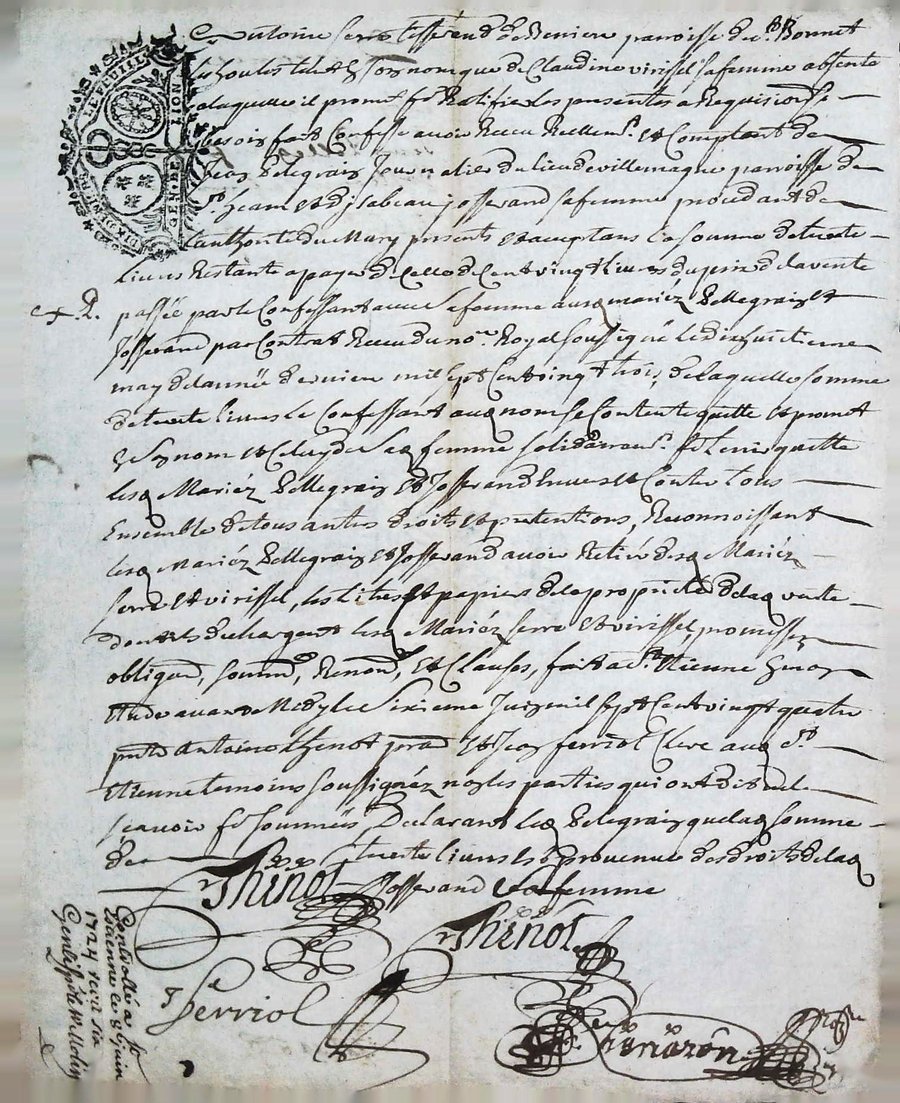 LE FEUILLE
GEN. DE LION
Antoine Serre tisserand de paroisse de St. Bonnet
les oules tant en son nom que de Claudine virissel sa femme absente
a laquelle il promet fe. Ratifier les presentes a Requisition
besoin fait Confesse avoir Receu Reellemt. et Comptant de
Jean Pelegrain Journalier du lieu de villemagne paroisse de
St. Jean et dysabeau josserand sa femme procedant de
lauthorité du Mary presents et acceptans la somme de trente
livres Restante a payer de Celle de Cent vingt livres du prix de la vente
passée par le Confessant avec sa femme ausq mariéz Pellegrain et
Josserand par Contrat Receu du nore. Royal soussigné le dixhuitieme
may de lannée derniere mil sept Cent vingt trois, de laquelle somme
de trente livres le Confessant auq nom se Contente quitte et promet
en son nom et Celuy de Saq femme solidairemt. fe. tenir quitte
lesq Mariéz Pellegrain et Josserand envers et Contre tous
Ensemble de tous autres droits et pretentions, Reconnoissant
lesq Mariéz Pellegrain et Josserand avoir Retiré desq Mariéz
Serre et virissel, les titres et papiers de la proprieté de laq vente
dont ils dechargent lesq Mariéz serre et virissel, promesses
obligaõn, soumõn, Renonõn, et Clauses, fait a St. Etienne
Etude avant Midy le Sixieme Juin mil sept Cent vingt quatre
pnts. Antoine thenot et Jean ferriol Clerc auq St.
Etienne temoins soussignéz non les parties qui ont dit ne le
sçavoir fe. sommés Declarant leq Pelegrain que laq somme
de trente livres est provenue des droits de laq
Josserand sa femme
Thenot
Thenot
Ferriol
Controllé a St.
Estienne le 8 Juin
1724 Reçu six